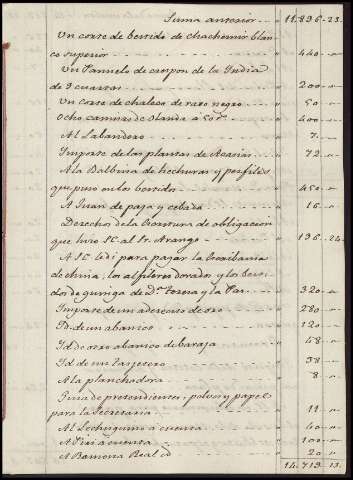 Suma anterior „ 11.896 „ 23.
Un corse de bestido de chachemir blan
co superior „ 440 „
Un Pañuelo de crespon de la India
de 9 cuartas „ 200 „
Un corse de chaleco de raso negro „ 50 „
Ocho camisas de olanda á 50 „ 400 „
Al Labandero „ 7 „
Importe de las plantas de Acasias „ 72 „
A la Balbina de hechuras y perfiles
que puso en los bestidos „ 450 „
A Juan de paja y cebada „ 16 „
Derechos de la Escritura de obligacion
que hizo SE al Sr. Arango „ 136 „ 24
A SE le di para pagar la
de china, los alfileres dorados y los
dos de de Da. Teresa y la „ 320 „
Importe de un aderesso de oro „ 280 „
Id. de un abanico „ 120 „
Id de otro abanico de baraja „ 58 „
Id de un Tarjetero „ 38 „
A la planchadora „ 8 „
Guia de pretendientes, polvos y papel
para la Secretaria „ 11 „
Al Lechuguino á cuenta „ 40 „
A Pias á cuenta „ 100 „
A Ramona Real id „ 20 „
14.719 „ 13.